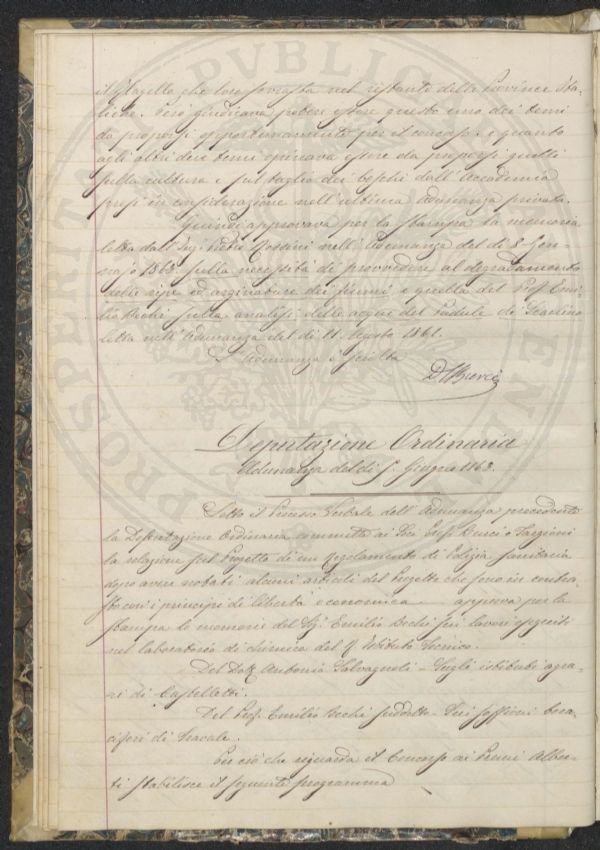 il flagello che loro sovrasta nel restante delle Province Ita-
liane. Però giudicava potere essere questo uno dei temi
da proporsi opportunamente per il concorso. e quanto
agli altri due temi opinava essere da proporsi quelli
sulla cultura e sul taglio dei boschi dall'Accademia
presi in considerazione nell'ultima Adunanza privata.
Quindi approvava per la stampa la memoria
letta dall'Sig. Pietro Rossini nell'Adunanza del dì 8 Gen-
najo 1863 sulla necessità di provvedere al degradamento
delle ripe ed arginature dei fiumi, e quella del Prof. Emi-
lio Bechi sulla analisi delle acque del Padule di Scarlino
letta nell'Adunanza del dì 11 Agosto 1861.
L'Adunanza è sciolta
Deputazione Ordinaria
Adunanza del dì 5. Giugno 1863.
Letto il Processo Verbale dell'Adunanza precedente
la Deputazione Ordinaria committe ai Soci Prof. Cuzi e Targioni
la relazione sul Progetto di un Regolamento di Polizia Sanitaria
dopo avere notati alcuni articoli del Progetto che sono in contra-
sto con i principi di libertà economica approva per la
stampa le memorie del Sig. Emilio Bechi sui lavori eseguiti
nel laboratorio di chimica del R. Istituto Tecnico.
Del Dott. Antonio Salvagnoli – Sugli istituti agra-
ri di Castelletti.
Del Prof. Emilio Bechi suddetto – Sui soffioni bora-
ciferi di Travale.
Per ciò che riguarda il Concorso ai Premi Alber-
ti stabilisce il seguente programma
PROSPERITA PUBLICA